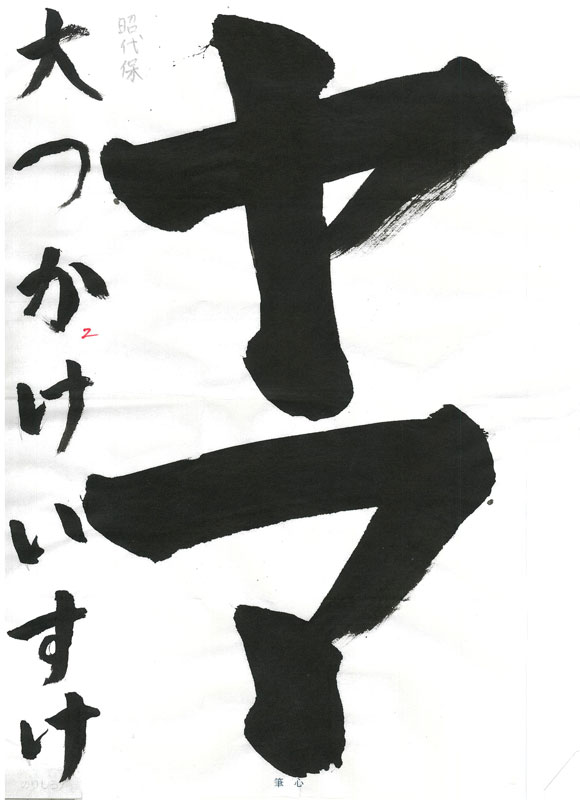 ヤマ
昭代保
大つかけいすけ
2
筆心